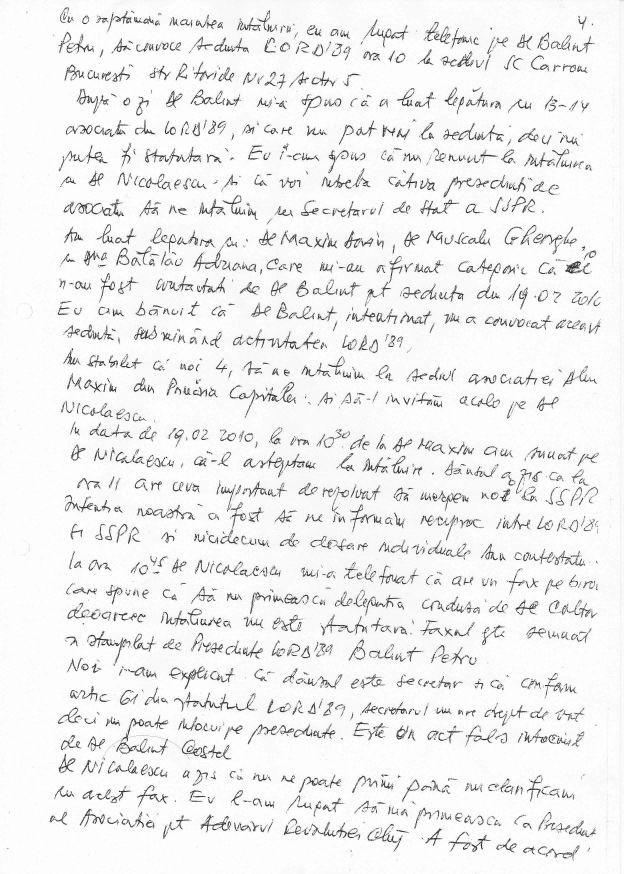 4.
Cu o saptămână înaintea întâlnirii, eu am rugat telefonic pe Dl Balint
Petru, să convoce sedinta LORD'89 ora 10 la sediul SC Carrom
Bucuresti str Ritoride Nr 27 sector 5
După o zi Dl Balint mi-a spus că a luat legătura cu 13-14
asociatii din LORD'89, si care nu pot veni la sedintă, deci nu
putea fi statutară. Eu i-am spus că nu renunt la întâlnirea
cu Dl Nicolaescu. si că voi întreba câtiva presedinti de
asociatii să ne întâlnim cu Secretarul de Stat a SSPR.
Am luat legatura cu: Dl Maxim Dorin, Dl Muscalu Gherghe,
cu Dna Bătălău Adriana, care mi-au afirmat categoric că ei
n-au fost contactati de Dl Balint pt sedinta din 19.02 2010
Eu am bănuit că Dl Balint, intentionat, nu a convocat această
sedintă, subminând activitatea LORD'89,
Am stabilit că noi 4, să ne întâlnim la sediul asociatiei Dlui
Maxim din Primăria Capitalei. si să-l invităm acolo pe Dl
Nicolaescu.
In data de 19.02 2010, la ora 10 30 de la Dl Maxim am sunat pe
Dl Nicolaescu, că-l asteptam la întâlnire. Dânsul a zis ca la
ora 11 are ceva important de rezolvat să mergem noi la SSPR
Intentia noastră a fost să ne informăm reciproc intre LORD'89
si SSPR si nicidecum de dosare individuale sau contestatii.
la ora 10 45 Dl Nicolaescu mi-a telefonat că are un fax pe birou
care spune că să nu primească delegatia condusă de Dl Caltor
deoarece întâlnirea nu este statutară. Faxul este semnat
si stampilat de Presedinte LORD'89 Balint Petru
Noi i-am explicat că dânsul este secretar si că conform
artic 61 din statutul LORD'89, secretarul nu are drept de vot
deci nu poate inlocui pe presedinte. Este un act fals intocmit
de Dl Balint Costel
Dl Nicolaescu a zis că nu ne poate primi până nu clarificam
cu acest fax. Eu l-am rugat să mă primeasca ca Presedinte
al Asociatiei pt Adevarul Revolutiei Cluj. A fost de acord